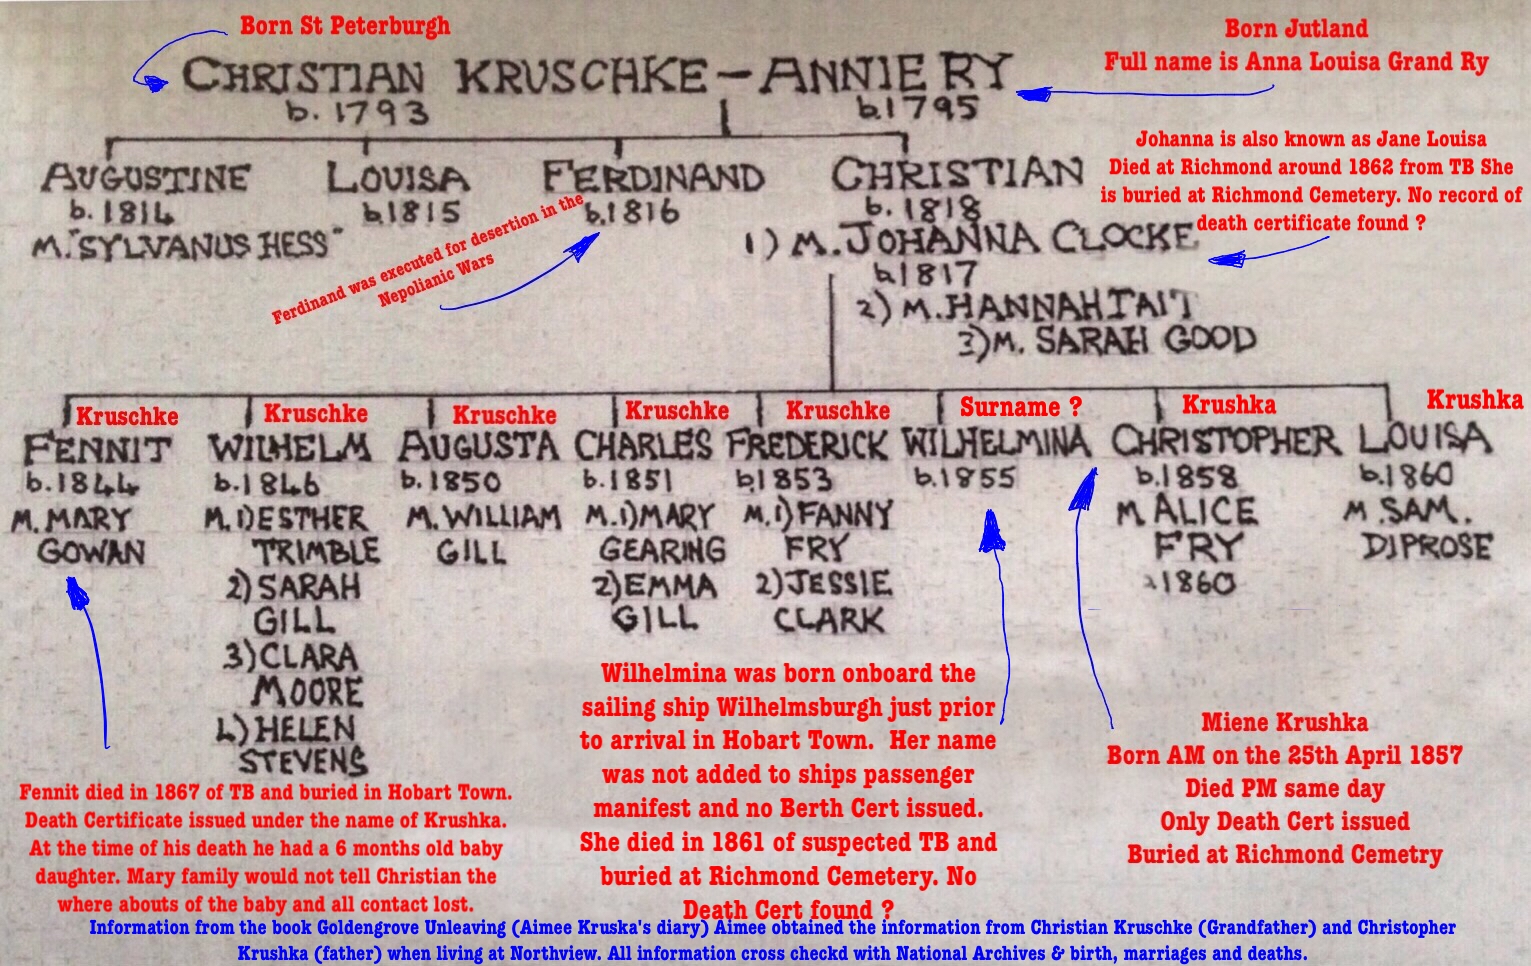 Born St Peterburgh
Born Jutland
Full name is Anna Louisa Grand Ry
CHRISTIAN KRUSCHKE – ANNIE RY
b. 1793
b.1795
Johanna is also known as Jane Louisa
Died at Richmond around 1862 from TB She
is buried at Richmond Cemetery. No record of
death certificate found ?
AUGUSTINE
b. 1814
M. "SYLVANUS HESS"
LOUISA
b.1815
FERDINAND
b.1816
Ferdinand was executed for desertion in the
Nepolianic Wars
CHRISTIAN
b. 1818
1) M. JOHANNA CLOCKE
b.1817
2) M. HANNAH TAIT
3) M. SARAH GOOD
Kruschke
FENNIT
b.1844
M. MARY
GOWAN
Kruschke
WILHELM
b.1846
M. 1) ESTHER
TRIMBLE
2) SARAH
GILL
3) CLARA
MOORE
4) HELEN
STEVENS
Kruschke
AUGUSTA
b.1850
M. WILLIAM
GILL
Kruschke
CHARLES
b.1851
M. 1) MARY
GEARING
2) EMMA
GILL
Kruschke
FREDERICK
b.1853
M. 1) FANNY
FRY
2) JESSIE
CLARK
Surname ?
WILHELMINA
b.1855
Krushka
CHRISTOPHER
b.1858
M ALICE
FRY
1860
Krushka
LOUISA
b.1860
M. SAM.
DIPROSE
Fennit died in 1867 of TB and buried in Hobart Town.
Death Certificate issued under the name of Krushka.
At the time of his death he had a 6 months old baby
daughter. Mary family would not tell Christian the
where abouts of the baby and all contact lost.
Wilhelmina was born onboard the
sailing ship Wilhelmsburgh just prior
to arrival in Hobart Town. Her name
was not added to ships passenger
manifest and no Berth Cert issued.
She died in 1861 of suspected TB and
buried at Richmond Cemetery. No
Death Cert found ?
Miene Krushka
Born AM on the 25th April 1857
Died PM same day
Only Death Cert issued
Buried at Richmond Cemetry
Information from the book Goldengrove Unleaving (Aimee Kruska's diary) Aimee obtained the information from Christian Kruschke (Grandfather) and Christopher
Krushka (father) when living at Northview. All information cross checkd with National Archives & birth, marriages and deaths.